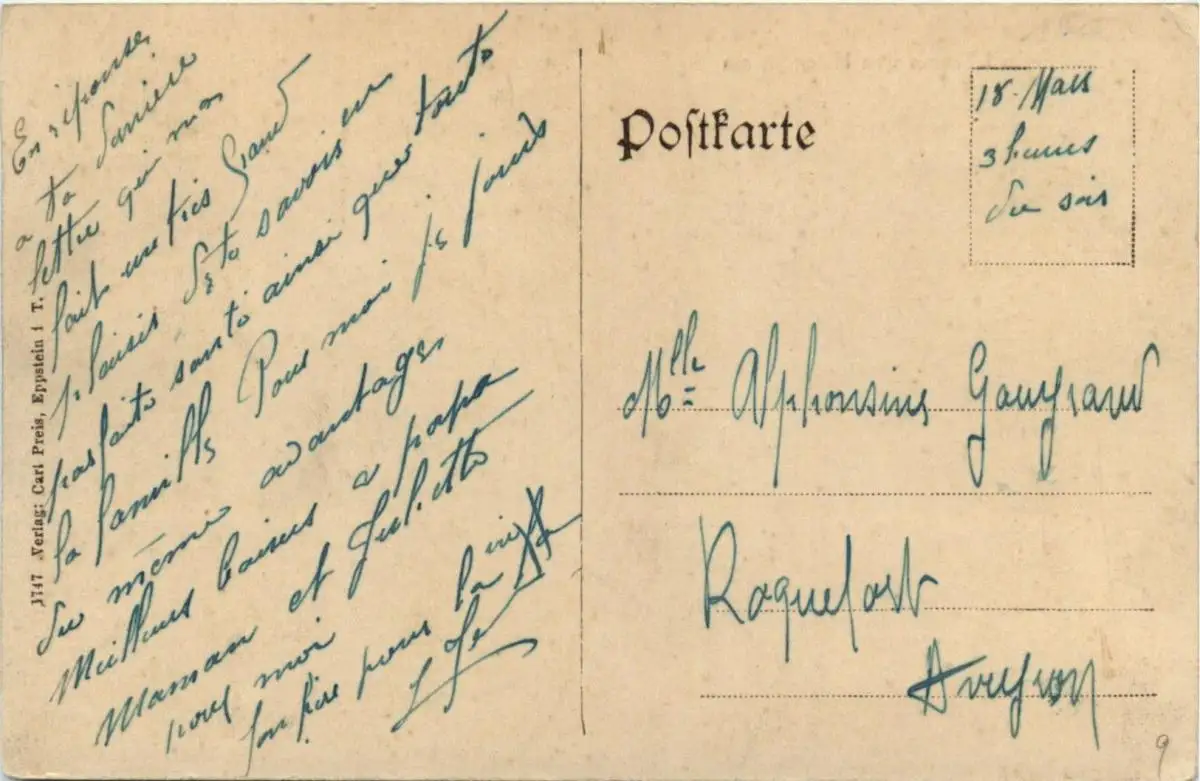 En réponse
a ta dernière
lettre qui ma
fait une très grand
plaisir de te savoir en
parfaite santé ainsi que toute
la famille Pour moi je jouis
du même avantage
Meilleurs baisers a papa
Maman et Juliette
pour moi
ton frère pour la vie
1747 Verlag: Carl Preis, Eppstein i T.
Postkarte
18 Mars
3 heures
du soir
Mlle Alphonsine
Roquefort
Aveyron
9